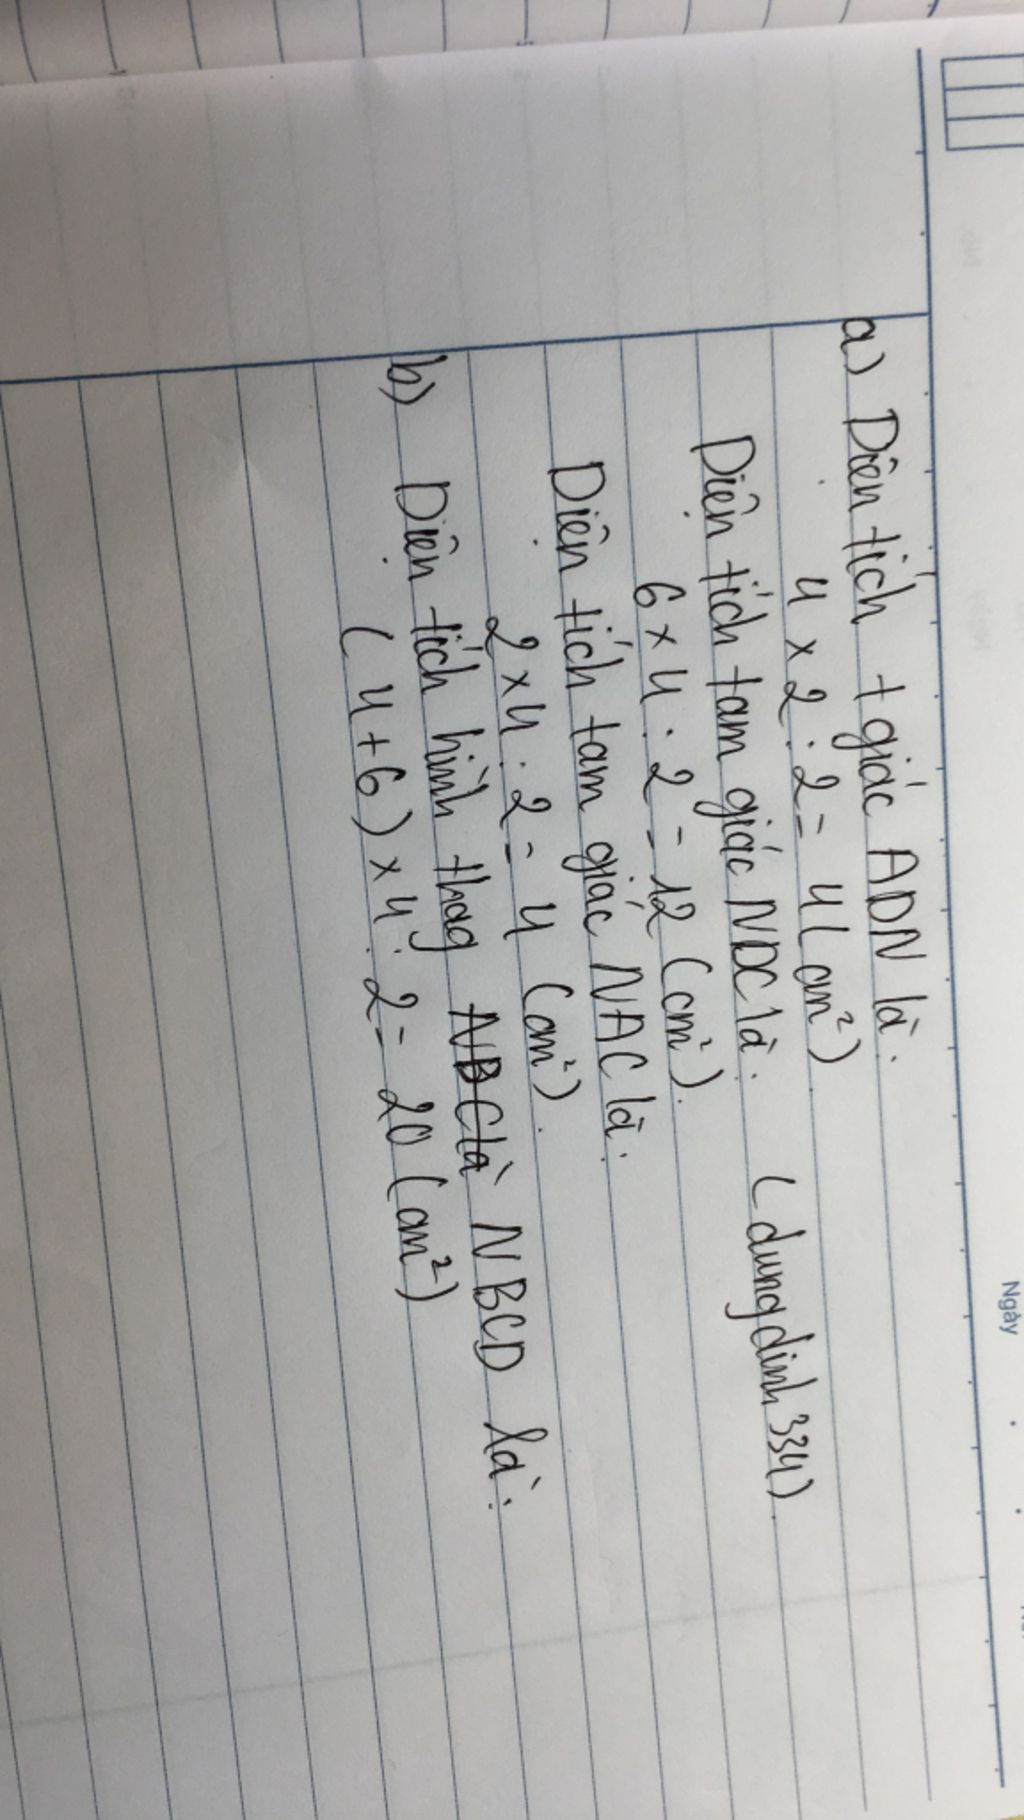 Ngày
a) Diện tích t giác ADN là:
4 x 2 : 2 = 4 (cm²)
Diện tích tam giác NDC là: (dungdinh334)
6 x 4 : 2 = 12 (cm²)
Diện tích tam giác NAC là:
2 x 4 : 2 = 4 (cm²)
b) Diện tích hình thag NBC là NBCD là:
(4+6) x 4 : 2 = 20 (cm²)